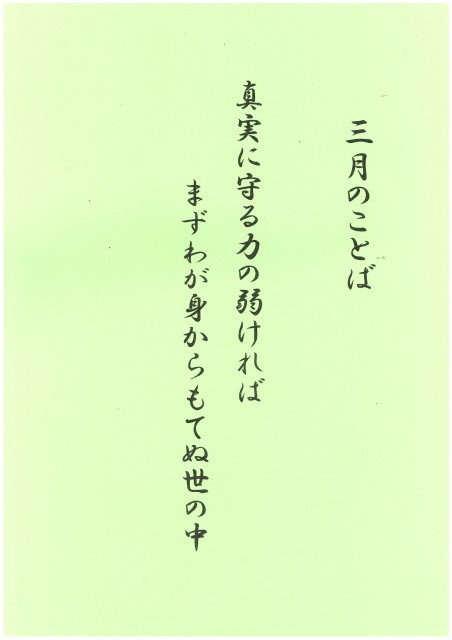 三月のことば
真実に守る力の弱ければ
まずわが身からもてぬ世の中